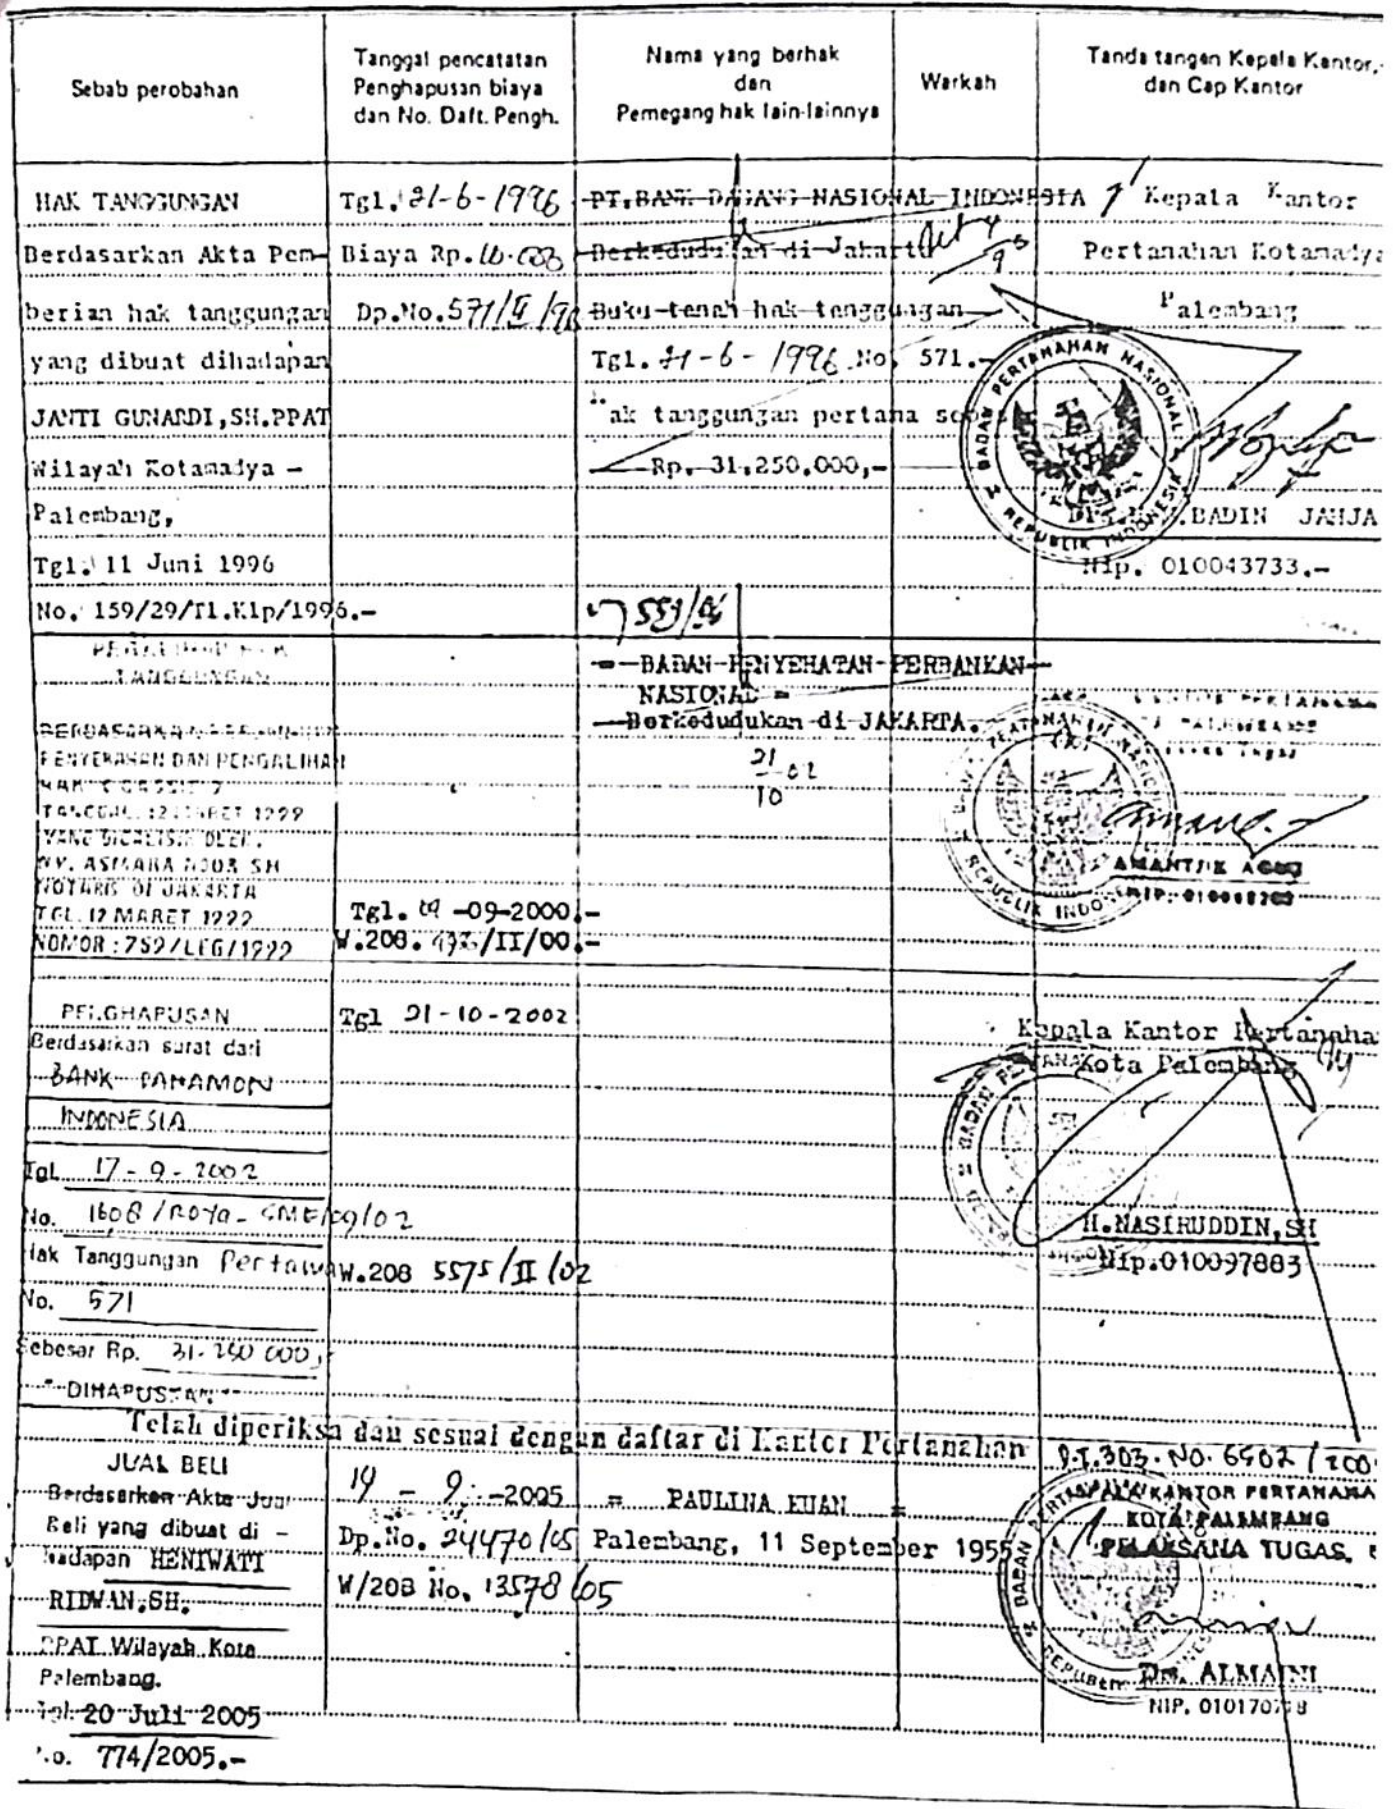 Sebab perobahan
Tanggal pencatatan
Penghapusan biaya
dan No. Daft. Pengh.
Nama yang berhak
dan
Pemegang hak lain-lainnya
Warkah
Tanda tangan Kepala Kantor,
dan Cap Kantor
HAK TANGGUNGAN
Berdasarkan Akta Pem-
berian hak tanggungan
yang dibuat dihadapan
JANTI GUNARDI,SH.PPAT
Wilayah Kotamadya -
Palembang,
Tgl. 11 Juni 1996
No. 159/29/Il.Klp/1996.-
Tgl. 21-6-1996
Biaya Rp.
Dp.No. 571/II/96
PT.BANK DAGANG NASIONAL INDONESIA
Berkedudukan di Jakarta
Buku tanah hak tanggungan
Tgl. 21-6-1996 No. 571.-
Hak tanggungan pertama sebesar
Rp. 31,250,000,-
553/96
Kepala Kantor
Pertanahan Kotamadya
Palembang
BADAN PERTANAHAN NASIONAL
REPUBLIK INDONESIA
BADIN JAHJA
Nip. 010043733.-
TANGGUNGAN
BERDASARKAN
PENYERAHAN DAN PENGALIHAN
HAK (CASSIE)
TANGGAL 12 MARET 1999
YANG DICALISIR OLEH.
NY. ASMARA NOOR SH
NOTARIS DI JAKARTA
TGL. 12 MARET 1999
NOMOR : 759/LEG/1999
Tgl. 09 -09-2000.-
W.208. /II/00.-
= BADAN PENYEHATAN PERBANKAN
NASIONAL =
Berkedudukan di JAKARTA.
21
02
10
KANTOR PERTANAHAN
PALEMBANG
REPUBLIK INDONESIA
AMANTJIK AGUS
PENGHAPUSAN
Berdasarkan surat dari
BANK DANAMON
INDONESIA
Tgl. 17-9-2002
No. 1608/Roya-SME/09/02
Hak Tanggungan Pertama
No. 571
Sebesar Rp. 31.250.000,-
DIHAPUSKAN
Tgl 21-10-2002
W.208 5575/II/02
Kepala Kantor Pertanaha
Kota Palembang
H.NASIRUDDIN,SH
Nip.010097883
Telah diperiksa dan sesuai dengan daftar di Kantor Pertanahan
D.I.303.NO.6902/200
JUAL BELI
Berdasarkan Akta Jual
Beli yang dibuat di -
hadapan HENIWATI
RIDWAN,SH.
PPAT Wilayah Kota
Palembang.
Tgl. 20 Juli 2005
No. 774/2005.-
19 - 9 -2005
Dp.No. 24470/05
W/208 No. 13578/05
= PAULINA KUAN =
Palembang, 11 September 1955
KANTOR PERTANAHA
KOTA PALEMBANG
PELAKSANA TUGAS.
Drs. ALMAINI
NIP.